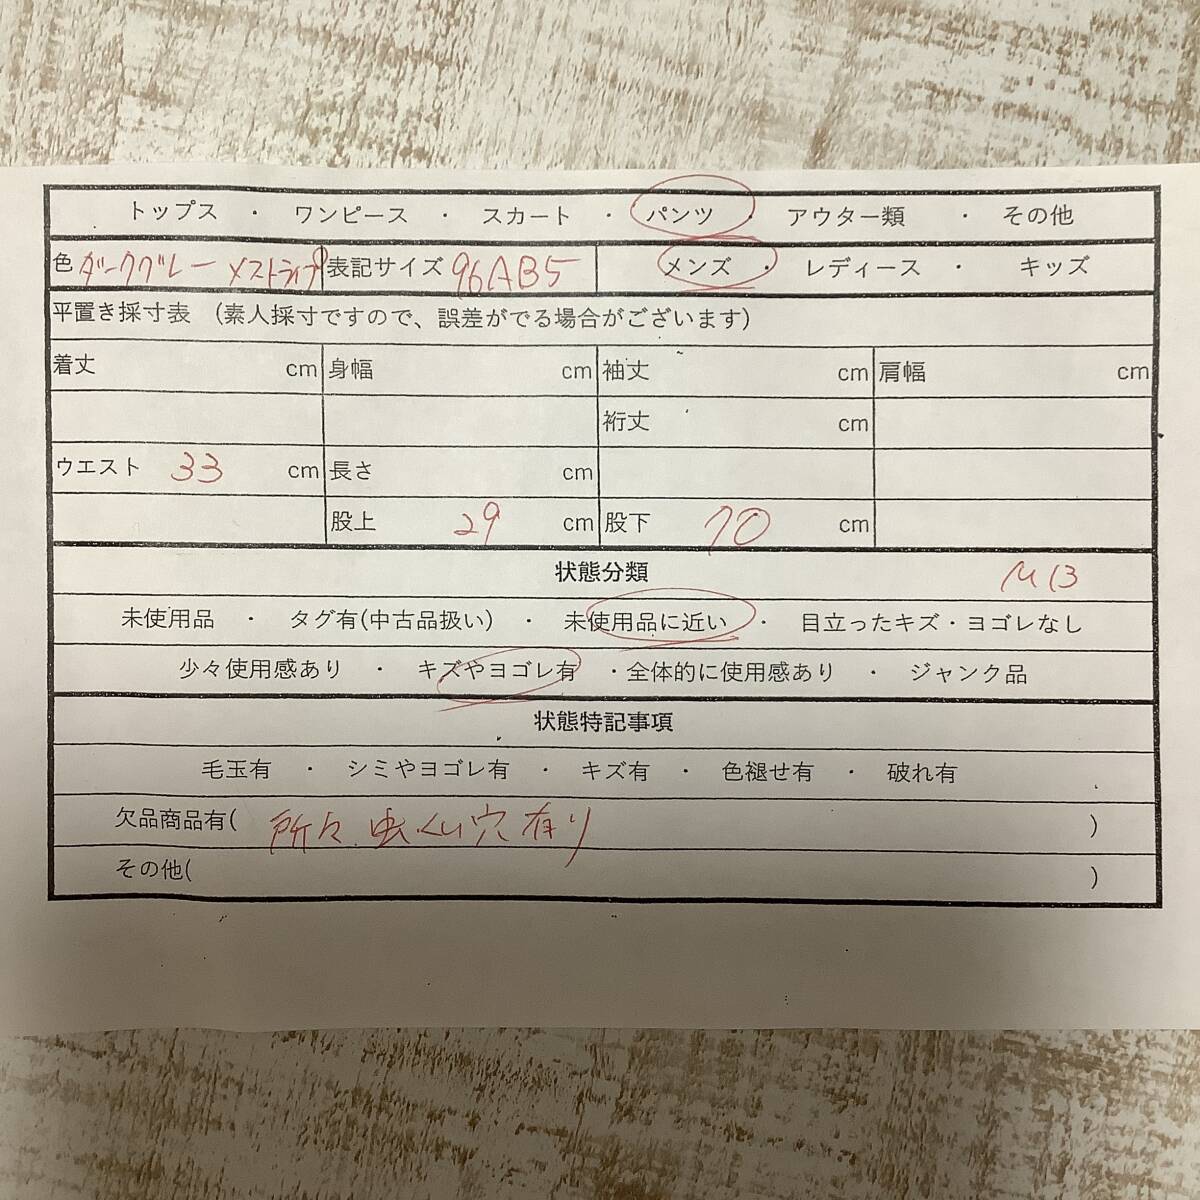 トップス ・ ワンピース ・ スカート ・ パンツ ・ アウター類 ・ その他
色 ダークグレー ストライプ 表記サイズ 96AB5 メンズ ・ レディース ・ キッズ
平置き採寸表 (素人採寸ですので、誤差がでる場合がございます)
着丈 cm 身幅 cm 袖丈 cm 肩幅 cm
裄丈 cm
ウエスト 33 cm 長さ cm
股上 29 cm 股下 70 cm
状態分類
未使用品 ・ タグ有(中古品扱い) ・ 未使用品に近い ・ 目立ったキズ・ヨゴレなし
少々使用感あり ・ キズやヨゴレ有 ・全体的に使用感あり ・ ジャンク品
状態特記事項
毛玉有 ・ シミやヨゴレ有 ・ キズ有 ・ 色褪せ有 ・ 破れ有
欠品商品有( 所々 虫くい穴有り )
その他( )